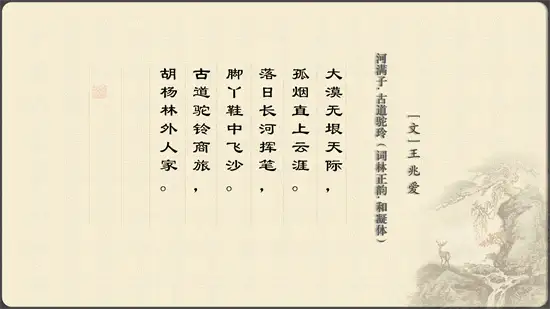 河满子·古道驼玲（词林正韵·和凝体）
文 王兆爱
大漠无垠天际，
孤烟直上云涯。
落日长河挥笔，
脚丫鞋中飞沙。
古道驼铃商旅，
胡杨林外人家。